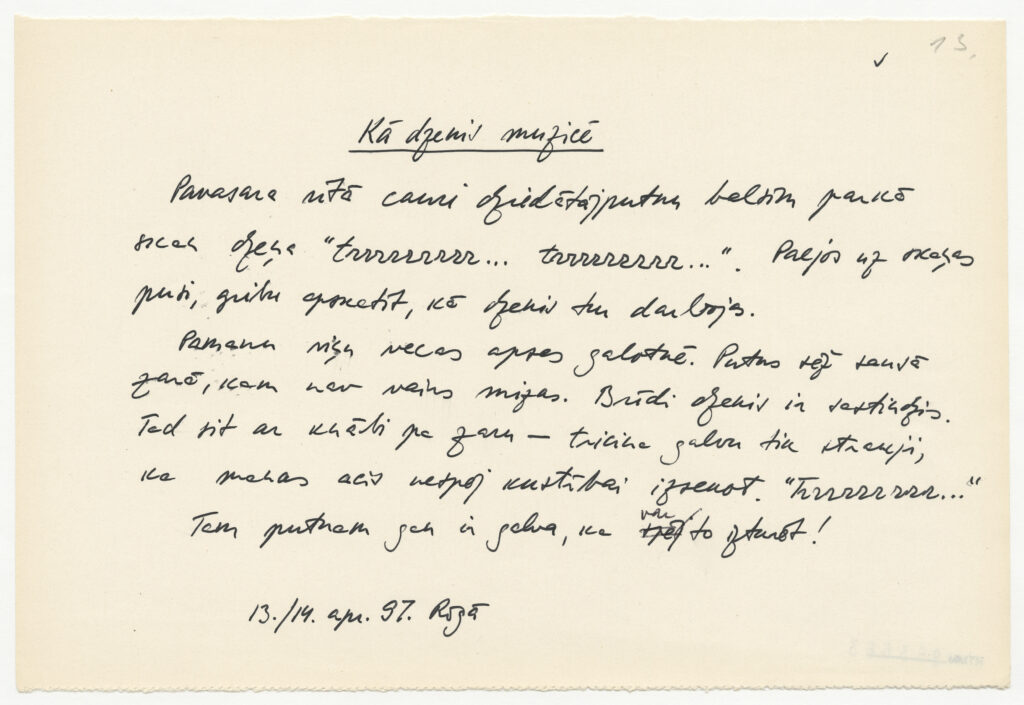 13.
✓
Kā dzenis muzicē
Pavasara rītā cauri dziedātājputnu balsīm parkā
skan dzeņa "trrrrrrrrr... trrrrrrrrr...". Paejos uz skaņas
pusi, gribu apskatīt, kā dzenis tur darbojas.
Pamanu viņu vecas apses galotnē. Putns sēž sausā
zarā, kam nav vairs mizas. Brīdi dzenis ir sastindzis.
Tad sit ar knābi pa zaru – tricina galvu tik strauji,
ka manas acis nespēj kustībai izsekot. "Trrrrrrrrr..."
Tam putnam gan ir galva, ka var to izturēt!
13./14. apr. 97. Rīgā